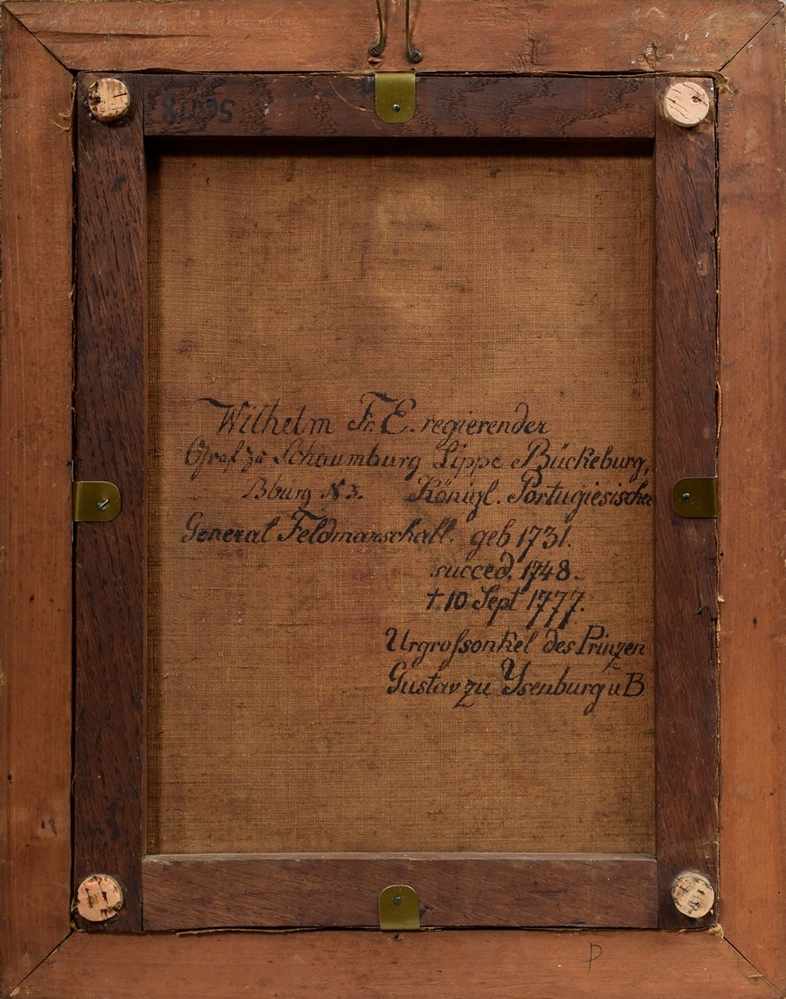 Wilhelm Fr. E. regierender
Graf zu Schaumburg Lippe Bückeburg,
Bburg N 3. Königl. Portugiesischer
General Feldmarschall. geb 1731.
succed. 1748.
† 10 Sept 1777.
Urgroſsonkel des Prinzen
Gustav zu Ysenburg u B
P